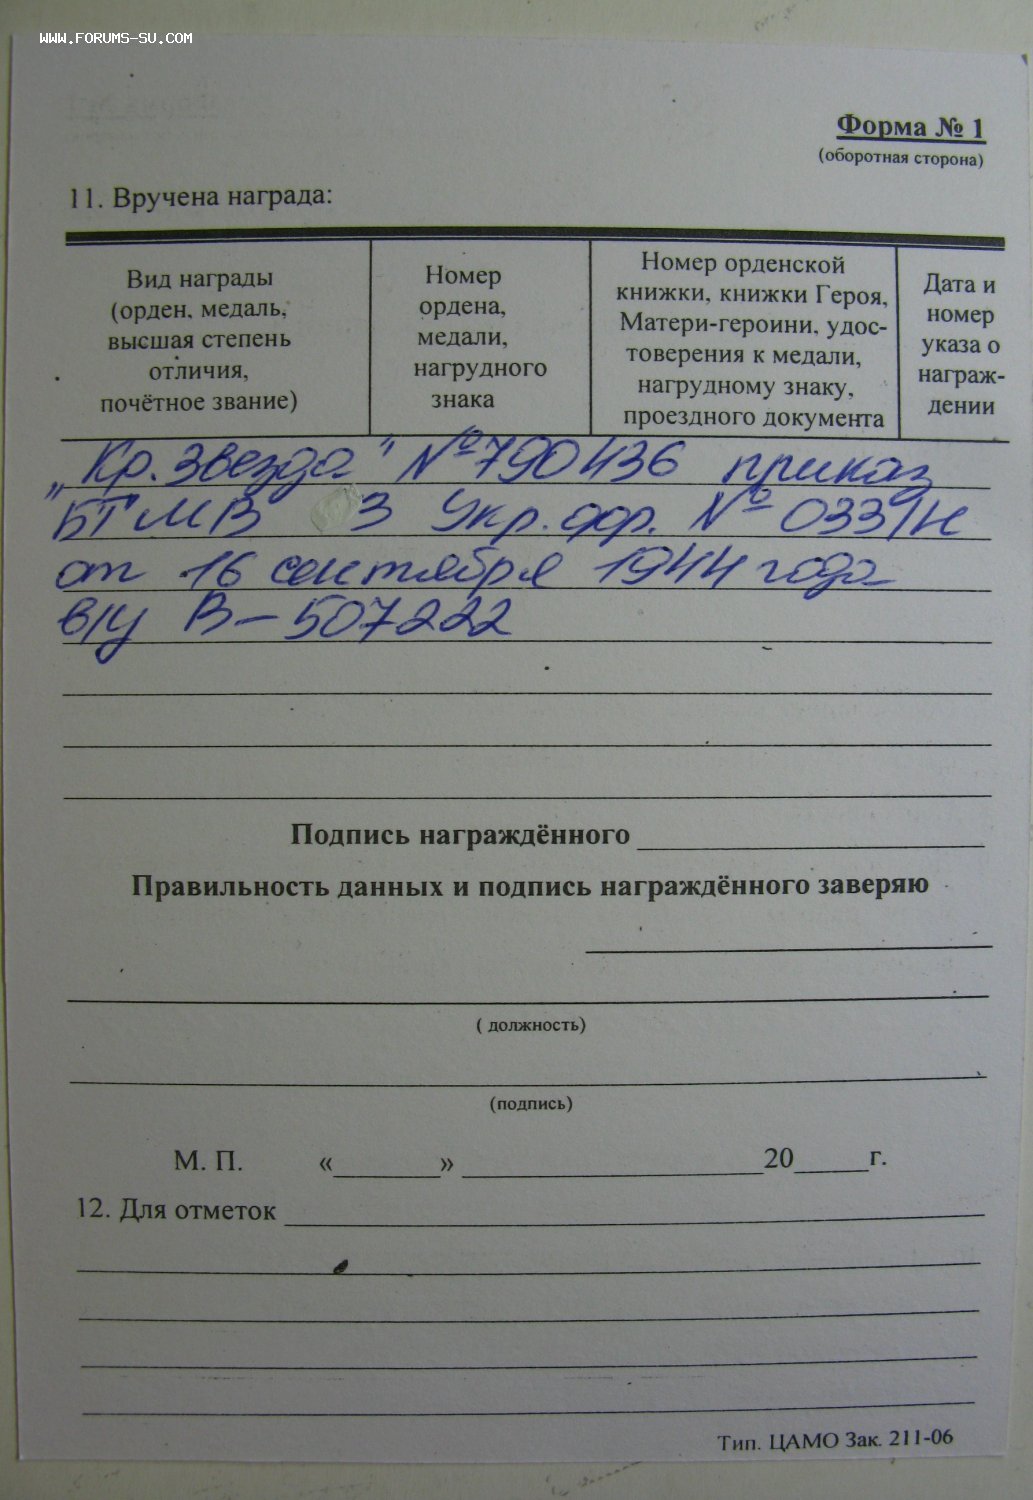 WWW.FORUMS-SU.COM
Форма № 1
(оборотная сторона)
11. Вручена награда:
Вид награды
(орден, медаль,
высшая степень
отличия,
почётное звание)
Номер
ордена,
медали,
нагрудного
знака
Номер орденской
книжки, книжки Героя,
Матери-героини, удос-
товерения к медали,
нагрудному знаку,
проездного документа
Дата и
номер
указа о
награж-
дении
„Кр. Звезда" № 790436 приказ
БТ МВ 3 Укр. фр. № 033/н
от 16 сентября 1944 года
в/у В-507222
Подпись награждённого
Правильность данных и подпись награждённого заверяю
( должность)
(подпись)
М. П. «______» ______ 20____г.
12. Для отметок
Тип. ЦАМО Зак. 211-06